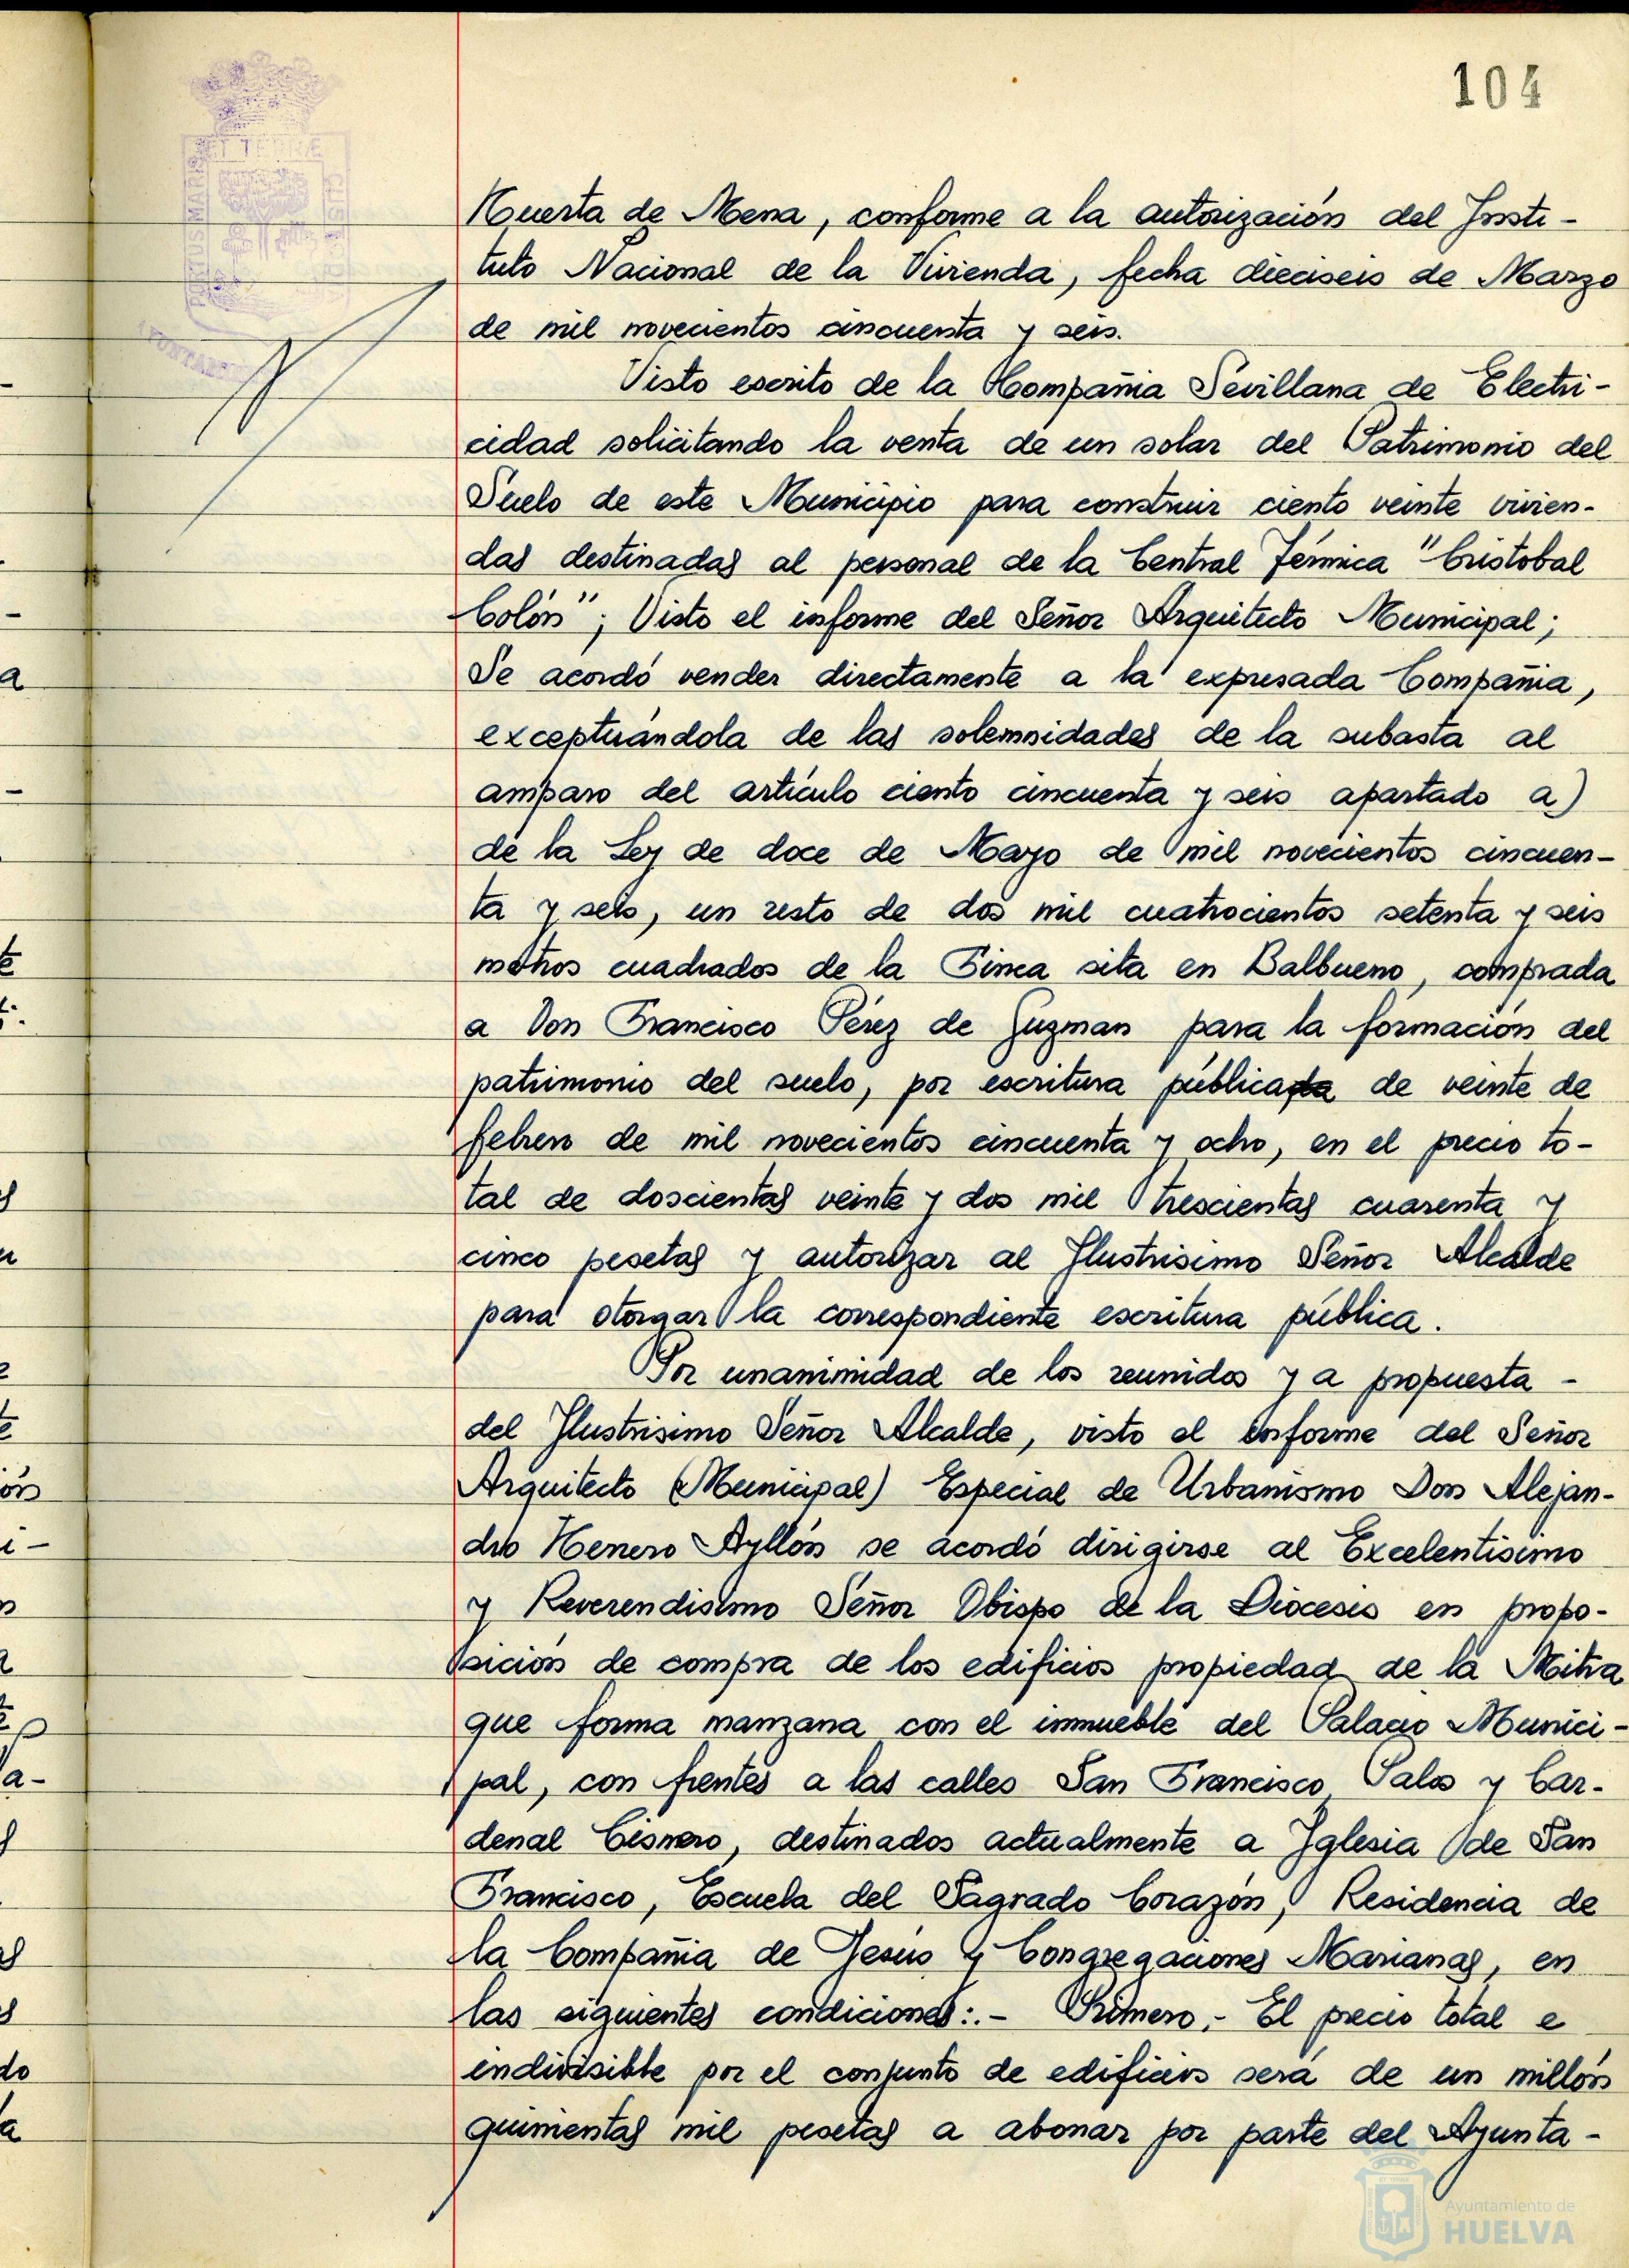 104
ET TERRÆ
PORTUS MARIS
CUST
AYUNTAM
Huerta de Mena, conforme a la autorización del Insti-
tuto Nacional de la Vivienda, fecha dieciseis de Marzo
de mil novecientos cincuenta y seis.
Visto escrito de la Compañia Sevillana de Electri-
cidad solicitando la venta de un solar del Patrimonio del
Suelo de este Municipio para construir ciento veinte vivien-
das destinadas al personal de la Central Térmica "Cristobal
Colón"; Visto el informe del Señor Arquitecto Municipal;
Se acordó vender directamente a la expresada Compañia,
exceptuándola de las solemnidades de la subasta al
amparo del artículo ciento cincuenta y seis apartado a)
de la Ley de doce de Mayo de mil novecientos cincuen-
ta y seis, un resto de dos mil cuatrocientos setenta y seis
metros cuadrados de la Finca sita en Balbueno, comprada
a Don Francisco Pérez de Guzman para la formación del
patrimonio del suelo, por escritura pública de veinte de
febrero de mil novecientos cincuenta y ocho, en el precio to-
tal de doscientas veinte y dos mil trescientas cuarenta y
cinco pesetas y autorizar al Ilustrisimo Señor Alcalde
para otorgar la correspondiente escritura pública.
Por unanimidad de los reunidos y a propuesta -
del Ilustrisimo Señor Alcalde, visto el informe del Señor
Arquitecto (Municipal) Especial de Urbanismo Don Alejan-
dro Herrero Ayllón se acordó dirigirse al Excelentisimo
y Reverendisimo Señor Obispo de la Diocesis en propo-
sición de compra de los edificios propiedad de la Mitra
que forma manzana con el inmueble del Palacio Munici-
pal, con frentes a las calles San Francisco, Palos y Car-
denal Cisnero, destinados actualmente a Iglesia de San
Francisco, Escuela del Sagrado Corazón, Residencia de
la Compañia de Jesús y Congregaciones Marianas, en
las siguientes condiciones:.- Primero.- El precio total e
indivisible por el conjunto de edificios será de un millón
quinientas mil pesetas a abonar por parte del Ayunta-
Ayuntamiento de
HUELVA